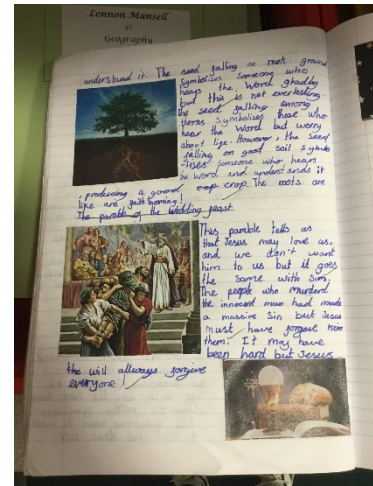 Lennon Mansell
Geography
understand it. The seed falling on rock ground
symbolises someone who
heaps the Word ghadly
but this is not everlasting.
The seed falling among
thorns symbolises those who
hear the Word but worry
about life. However, the seed
falling on good soil symbo
-lises someone who hears
the Word and understands it
, producing a good crop. The roots are
like are faith homing!
The parable of the Wedding feast
This parable tells as
that Jesus may love us,
and we don't want
him to us but it goes
the same with sin.
The people who murderd
the innocent man had made
a massive sin but Jesus
must have forgave
them. It may have
been hard but Jesus
the will allways forgive
everyone!